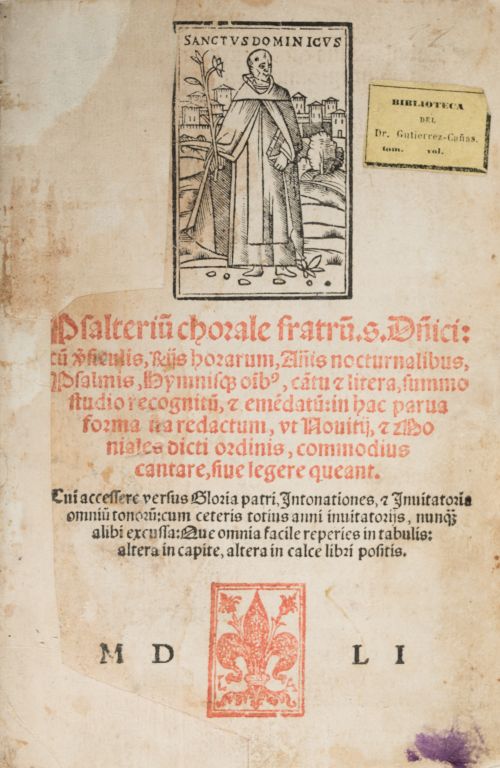 SANCTVS DOMINICVS
BIBLIOTECA
DEL
Dr. Gutierrez-Cañas.
tom. vol.
Psalteriū chorale fratrū.s.Dñici:
cū ỹsiculis, R̃ijs horarum, Añis nocturnalibus,
Psalmis, Hymnisq̃ oībꝰ, cātu ⁊ litera, summo
studio recognitū, ⁊ emēdatū: in hac parua
forma ita redactum, vt Nouitij, ⁊ Mo
niales dicti ordinis, commodius
cantare, siue legere queant.
Cui accessere versus Gloria patri, Intonationes, ⁊ Inuitatoria
omniū tonorū: cum ceteris totius anni inuitatorijs, nunq̄
alibi excussa: Que omnia facile reperies in tabulis:
altera in capite, altera in calce libri positis.
M D L I
L A